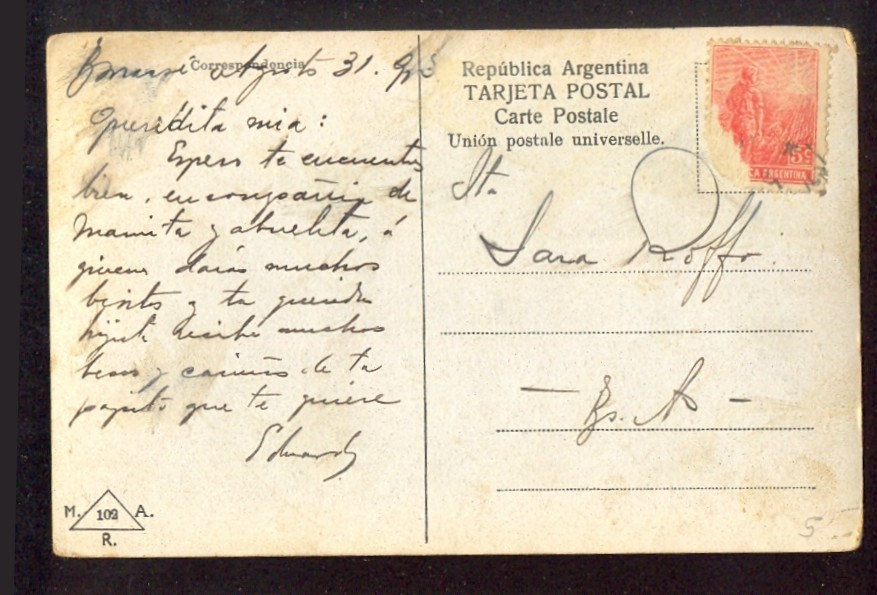 Correspondencia
Agosto 31.
Queridita mia:
Espero te encuentres
bien, en compañia de
Mamita y abuelita, á
quienes darás muchos
besitos y tu querida
hijita recibe muchos
besos y cariños de tu
papito que te quiere
Eduardo
M. 102 A.
R.
República Argentina
TARJETA POSTAL
Carte Postale
Unión postale universelle.
5c
CA ARGENTINA
Sta
Sara Roffo
Bs. As
5